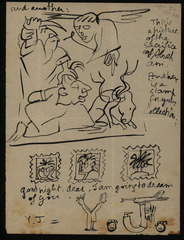 and another:
This is
a picture
of the
sacrifice
of
am
And here
is a
stamp
for your
collection
goodnight dear, I am going to dream
of you
Y.J. =